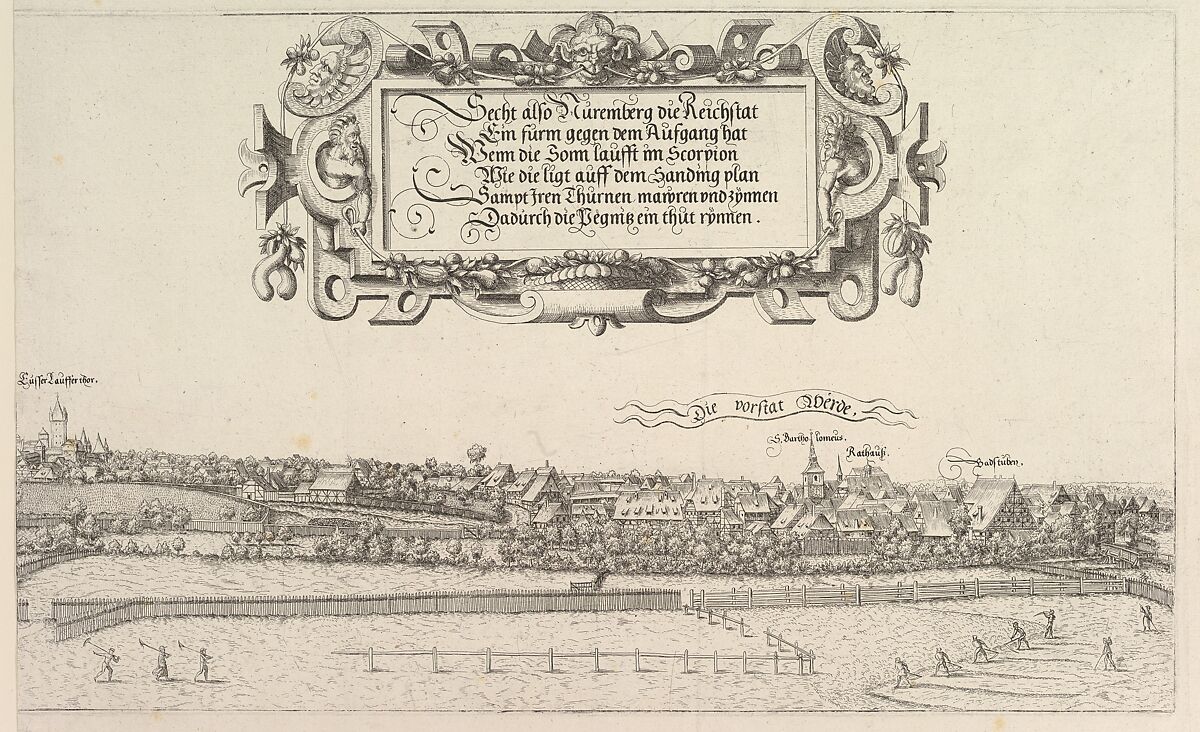 Secht also Nüremberg die Reichstat
Ein fürm gegen dem Aüfgang hat
Wenn die Sonn laüfft im Scorpion
Wie die ligt aüff dem Sanding plan
Sampt Iren Thürnen maẅren vnd zÿnnen
Dadürch die Pegnitz ein thüt rÿnnen.
Eüsser Laufferthor.
Die vorstat Wérde.
S. Bartholomeüs.
Rathauß.
Badstüben.